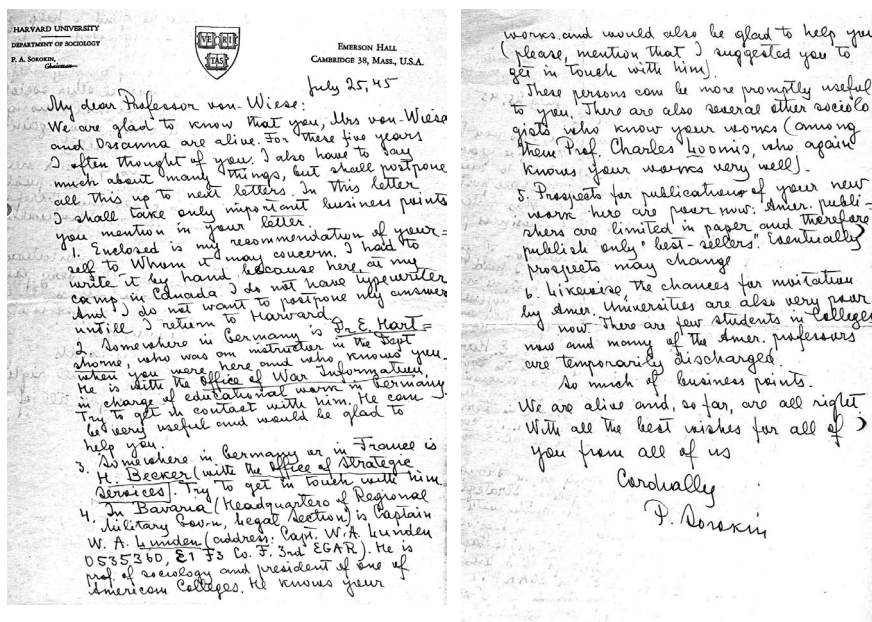 HARVARD UNIVERSITY
DEPARTMENT OF SOCIOLOGY
P. A. SOROKIN,
Chairman
VE RI
TAS
EMERSON HALL
CAMBRIDGE 38, MASS., U.S.A.
July 25, 45
My dear Professor von-Wiese:
We are glad to know that you, Mrs von-Wiese
and Ossanna are alive. For these five years
I often thought of you. I also have to say
much about many things, but shall postpone
all this up to next letters. In this letter
I shall take only important business points
you mention in your letter.
1. Enclosed is my recommendation of your=
self to Whom it may concern. I had to
write it by hand because here, at my
camp in Canada I do not have typewriter
And I do not want to postpone my answer
untill I return to Harvard.
2. Somewhere in Germany is Dr. E. Hart=
shorne, who was an instructor in the Dept
when you were here and who knows you.
He is with the Office of War Information,
in charge of educational work in Germany.
Try to get in contact with him. He can
be very useful and would be glad to
help you.
3. Somewhere in Germany or in France is
H. Becker (with the Office of Strategic
Services). Try to get in touch with him
4. In Bavaria (Headquarters of Regional
Military Gov-n, Legal Section) is Captain
W. A. Lunden (address: Capt. W. A. Lunden
0535360, E1 F3 Co. F. 3rd EGAR). He is
prof. of sociology and president of one of
American Colleges. He knows your
works and would also be glad to help you
(please, mention that I suggested you to
get in touch with him).
These persons can be more promptly useful
to you. There are also several other sociolo
gists who know your works (among
them Prof. Charles Loomis, who again
knows your works very well).
5. Prospects for publication of your new
work here are poor now: Amer. publi-
shers are limited in paper and therefore
publish only "best-sellers". Eventually
prospects may change
6. Likewise, the chances for invitation
by Amer. Universities are also very poor
now. There are few students in Colleges
now and many of the Amer. professors
are temporarily discharged.
So much of business points.
We are alive and, so far, are all right.
With all the best wishes for all of
you from all of us
Cordially
P. Sorokin